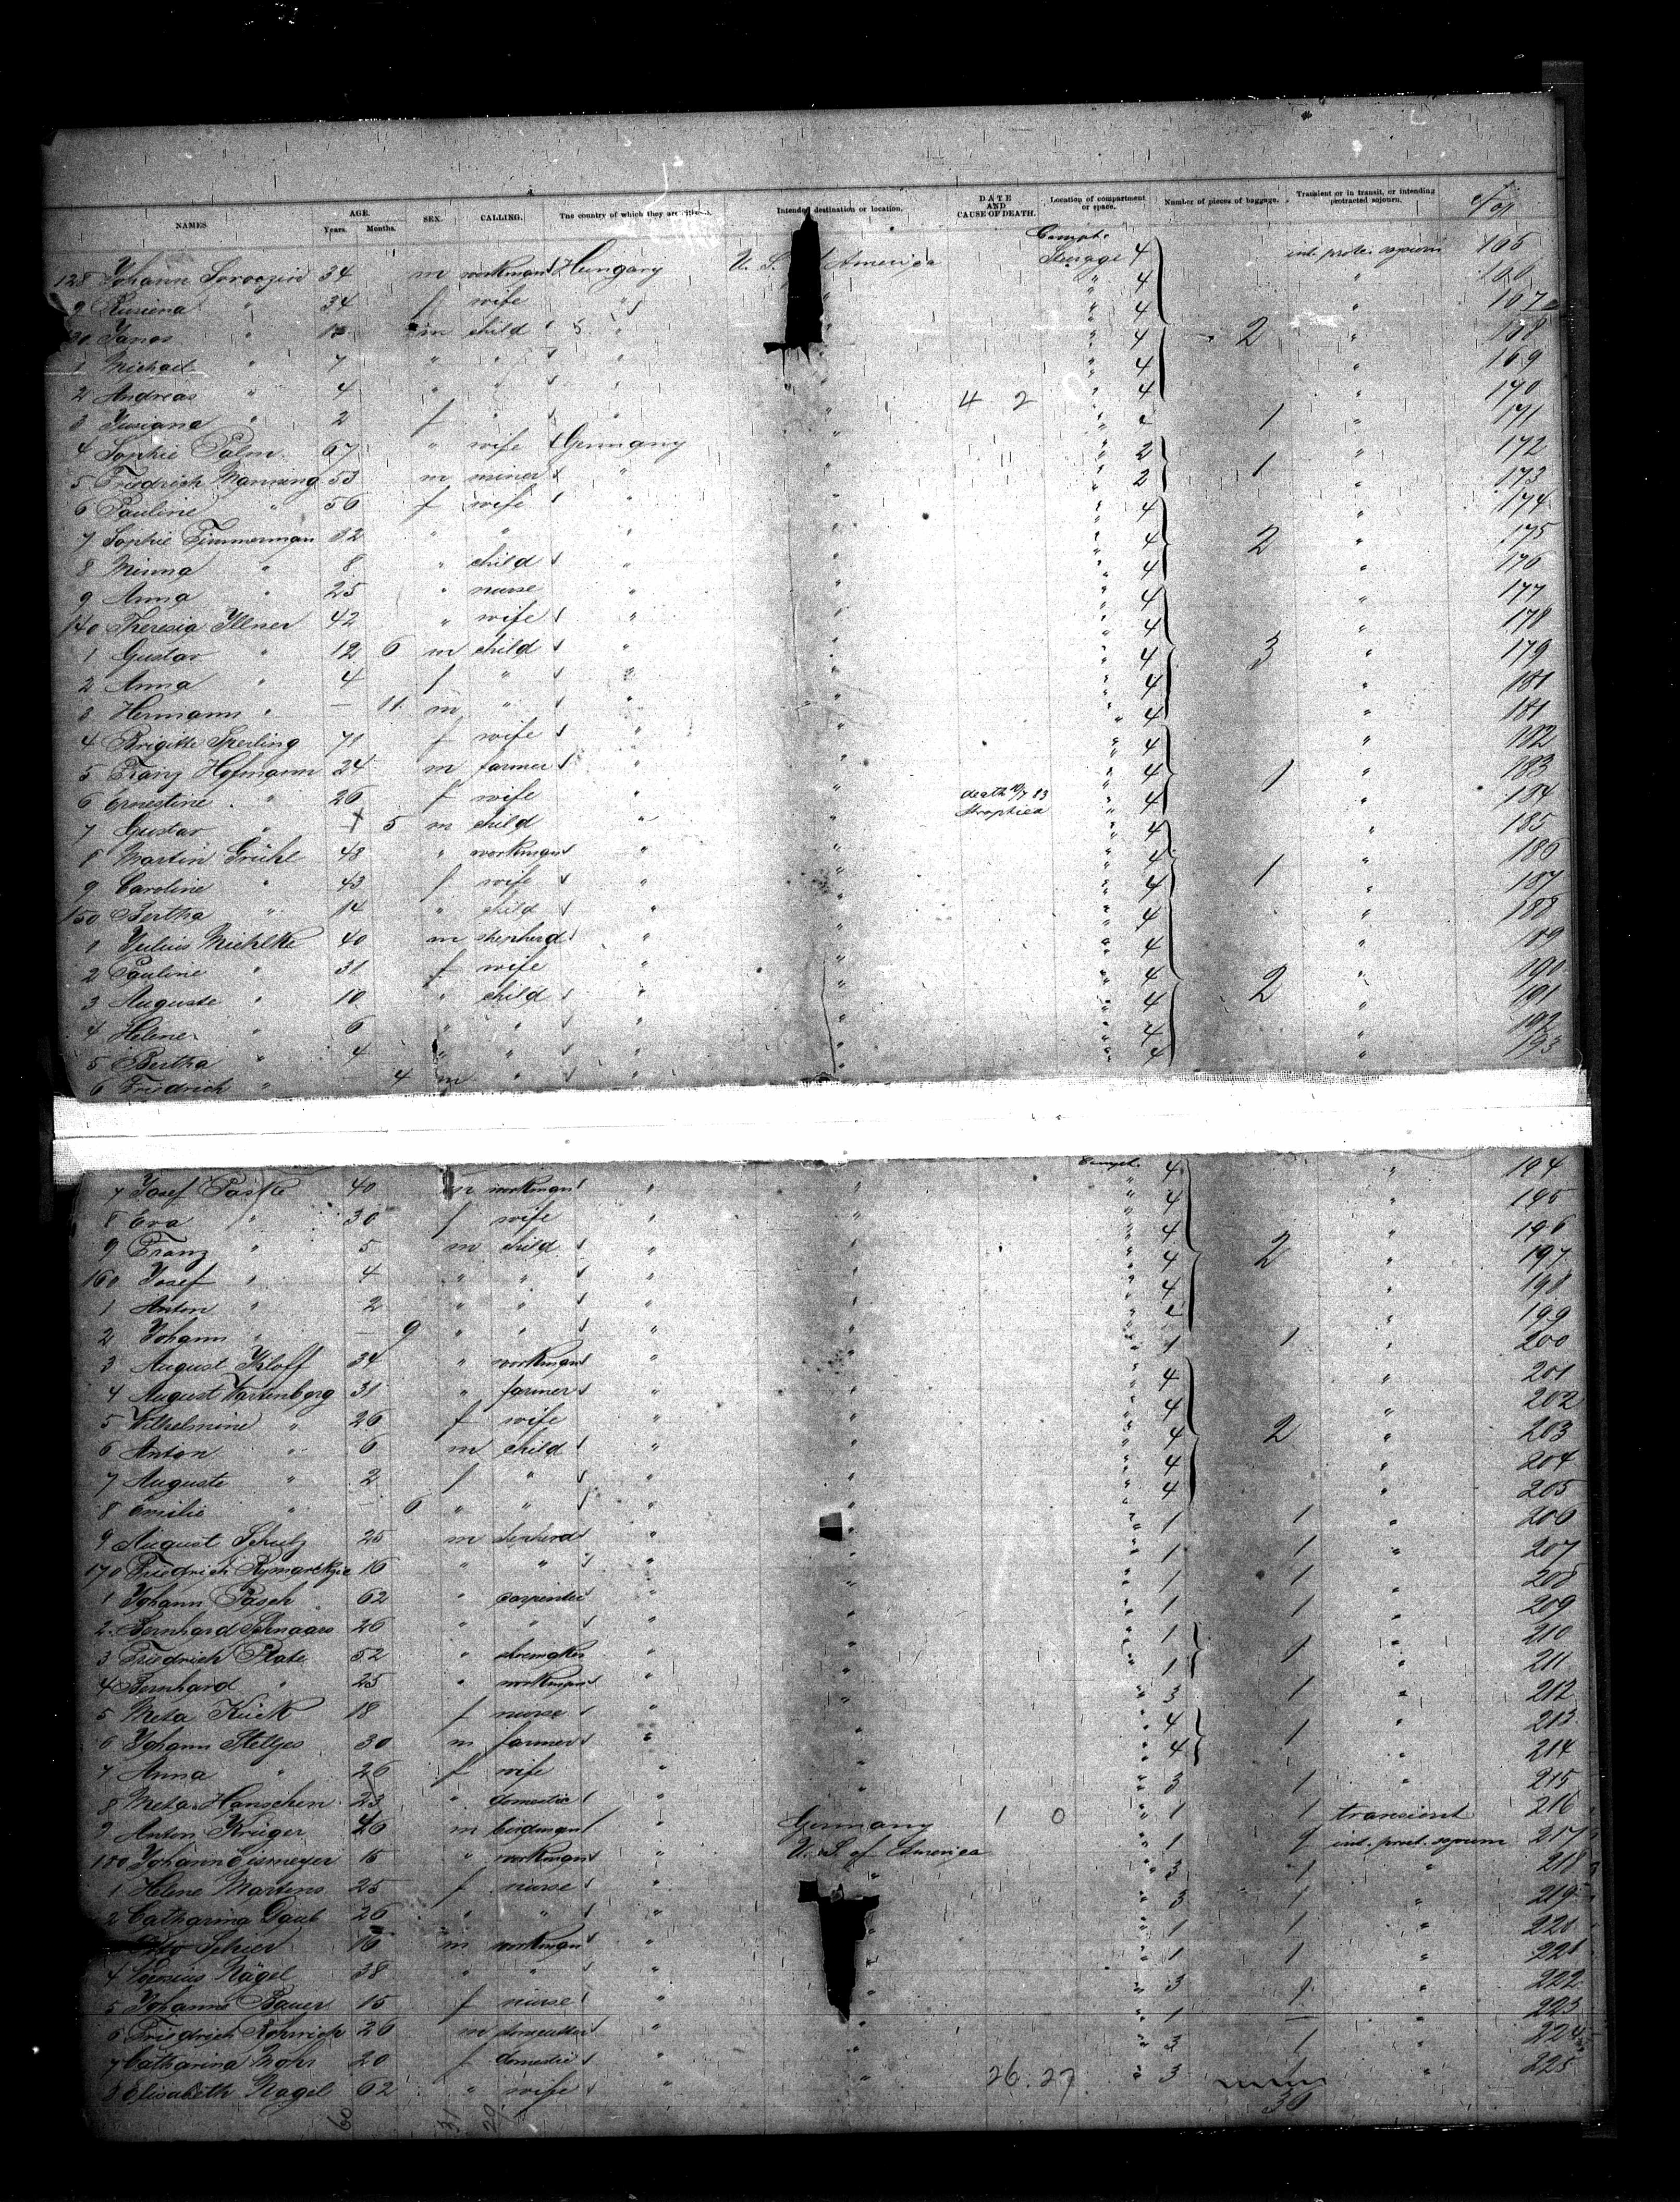 NAMES AGE. Years. Months. SEX. CALLING. The country of which they are citizens. Intended destination or location. DATE AND CAUSE OF DEATH. Location of compartment or space. Number of pieces of baggage. Transient or in transit, or intending protracted sojourn.
128 Johann 34 m workman Hungary U. S. America Compt. Steerage 4 int. protr. sojourn 165
9 " 34 f wife " " " 4 "
130 Janos " m child " " " 4 " 167
1 Michael " 7 " " " " 4 2 " 168
2 Andreas " 4 " " " " 4 " 169
3 " 2 f " " 4 2 " 4 " 170
4 Sophie Palm 67 " wife Germany " " 1 " 171
5 Friedrich Manning 53 m miner " " " 2 1 " 172
6 Pauline " 56 f wife " " " 2 " 173
7 Sophie Timmerman 32 " " " " 4 " 174
8 Minna " 8 " child " " " 4 2 " 175
9 Anna " 25 " nurse " " " 4 " 176
140 Theresia Illner 42 " wife " " " 4 " 177
1 Gustav " 12 6 m child " " " 4 " 178
2 Anna " 4 f " " " " 4 3 " 179
3 Hermann " — 11 m " " " " 4 " 181
4 Brigitte Sperling 71 f wife " " " 4 " 181
5 Franz Hofmann 24 m farmer " " " 4 " 182
6 Ernestine " 26 f wife " " death 10/7 83 " 4 1 " 183
7 Gustav " — 5 m child " " Atrophica " 4 " 184
8 Martin Grühl 48 " workman " " " 4 " 185
9 Caroline " 43 f wife " " " 4 1 " 186
150 Bertha " 14 " child " " " 4 " 187
1 Julius Michlke 40 m shepherd " " " 4 " 188
2 Pauline " 31 f wife " " " 4 " 189
3 Auguste " 10 " child " " " 4 2 " 190
4 Helene " 6 " " " " " 4 " 191
5 Bertha " 4 " " " " " 4 " 192
6 Friedrich " 4 m " " " " 4 " 193
7 Josef Paske 40 m workman " " Compt. 4 " 194
8 Eva " 30 f wife " " " 4 " 195
9 Franz " 5 m child " " " 4 " 196
160 Josef " 4 " " " " " 4 2 " 197
1 Anton " 2 " " " " " 4 " 198
2 Johann " — 9 " " " " " " 199
3 August Kloff 34 " workman " " " 1 1 " 200
4 August Wartenberg 31 " farmer " " " 4 " 201
5 Wilhelmine " 26 f wife " " " 4 " 202
6 Anton " 6 m child " " " 4 2 " 203
7 Auguste " 2 f " " " " 4 " 204
8 Emilie " — 6 " " " " " 4 " 205
9 August Schulz 25 m shepherd " " " 1 1 " 206
170 Friedrich 16 " " " " " 1 1 " 207
1 Johann Pasch 62 " carpenter " " " 1 1 " 208
2 Bernhard Schnaars 26 " " " " " 1 1 " 209
3 Friedrich Plate 52 " shoemaker " " " 1 " 210
4 Bernhard " 25 " workman " " " 1 1 " 211
5 Meta Kück 18 f nurse " " " 3 1 " 212
6 Johann Stelljes 30 m farmer " " " 4 " 213
7 Anna " 26 f wife " " " 4 1 " 214
8 Meta Hanschen 23 " domestic " " " 3 1 " 215
9 Anton Krüger 46 m " Germany 1 0 " 1 1 transient 216
180 Johann Eismeyer 15 " workman " U. S. of America " 1 int. protr. sojourn 217
1 Helene Martens 25 f nurse " " " 3 1 " 218
2 Catharina Daub 26 " " " " " 3 1 " 219
Schier 16 m workman " " " 1 1 " 220
4 Nägel 38 " " " " " 1 1 " 221
5 Johanna Bauer 15 f nurse " " " 3 1 " 222
6 Friedrich 26 m " " " 1 — " 223
7 Catharina Mohr 20 f domestic " " " 3 1 " 224
8 Elisabeth Nagel 62 " wife " " 26. 27 " 3 1 " 225
60 31 29 36